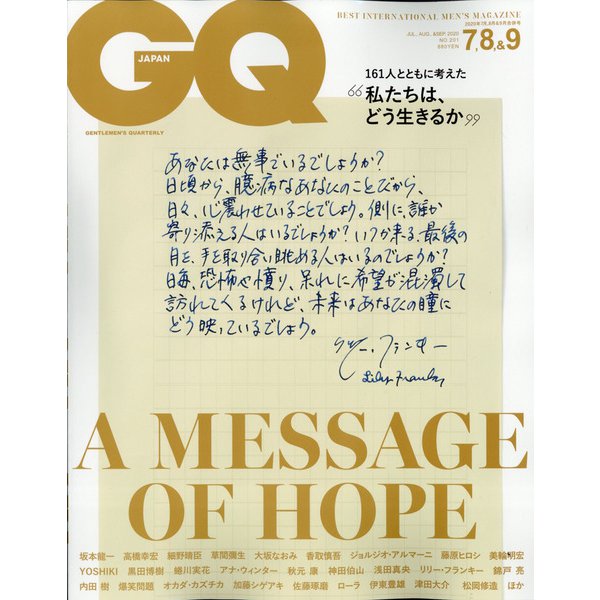 GQ
JAPAN
GENTLEMEN'S QUARTERLY
BEST INTERNATIONAL MEN'S MAGAZINE
JUL., AUG., &SEP. 2020
NO.201
880YEN
2020年7月,8月&9月合併号
7,8,&9
161人とともに考えた
“私たちは、
どう生きるか”
あなたは無事でいるでしょうか?
日頃から、臆病なあなたのことだから、
日々、心震わせていることでしょう。側に、誰か
寄り添える人はいるでしょうか?いつか来る、最後の
月を、手を取り合い眺める人はいるのでしょうか?
日毎、恐怖や憤り、呆れに希望が混濁して
訪れてくるけれど、未来はあなたの瞳に
どう映っているでしょう。
リリー・フランキー
Lily Franky
A MESSAGE
OF HOPE
坂本龍一 高橋幸宏 細野晴臣 草間彌生 大坂なおみ 香取慎吾 ジョルジオ・アルマーニ 藤原ヒロシ 美輪明宏
YOSHIKI 黒田博樹 蜷川実花 アナ・ウィンター 秋元 康 神田伯山 浅田真央 リリー・フランキー 錦戸 亮
内田 樹 爆笑問題 オカダ・カズチカ 加藤シゲアキ 佐藤琢磨 ローラ 伊東豊雄 津田大介 松岡修造 ほか